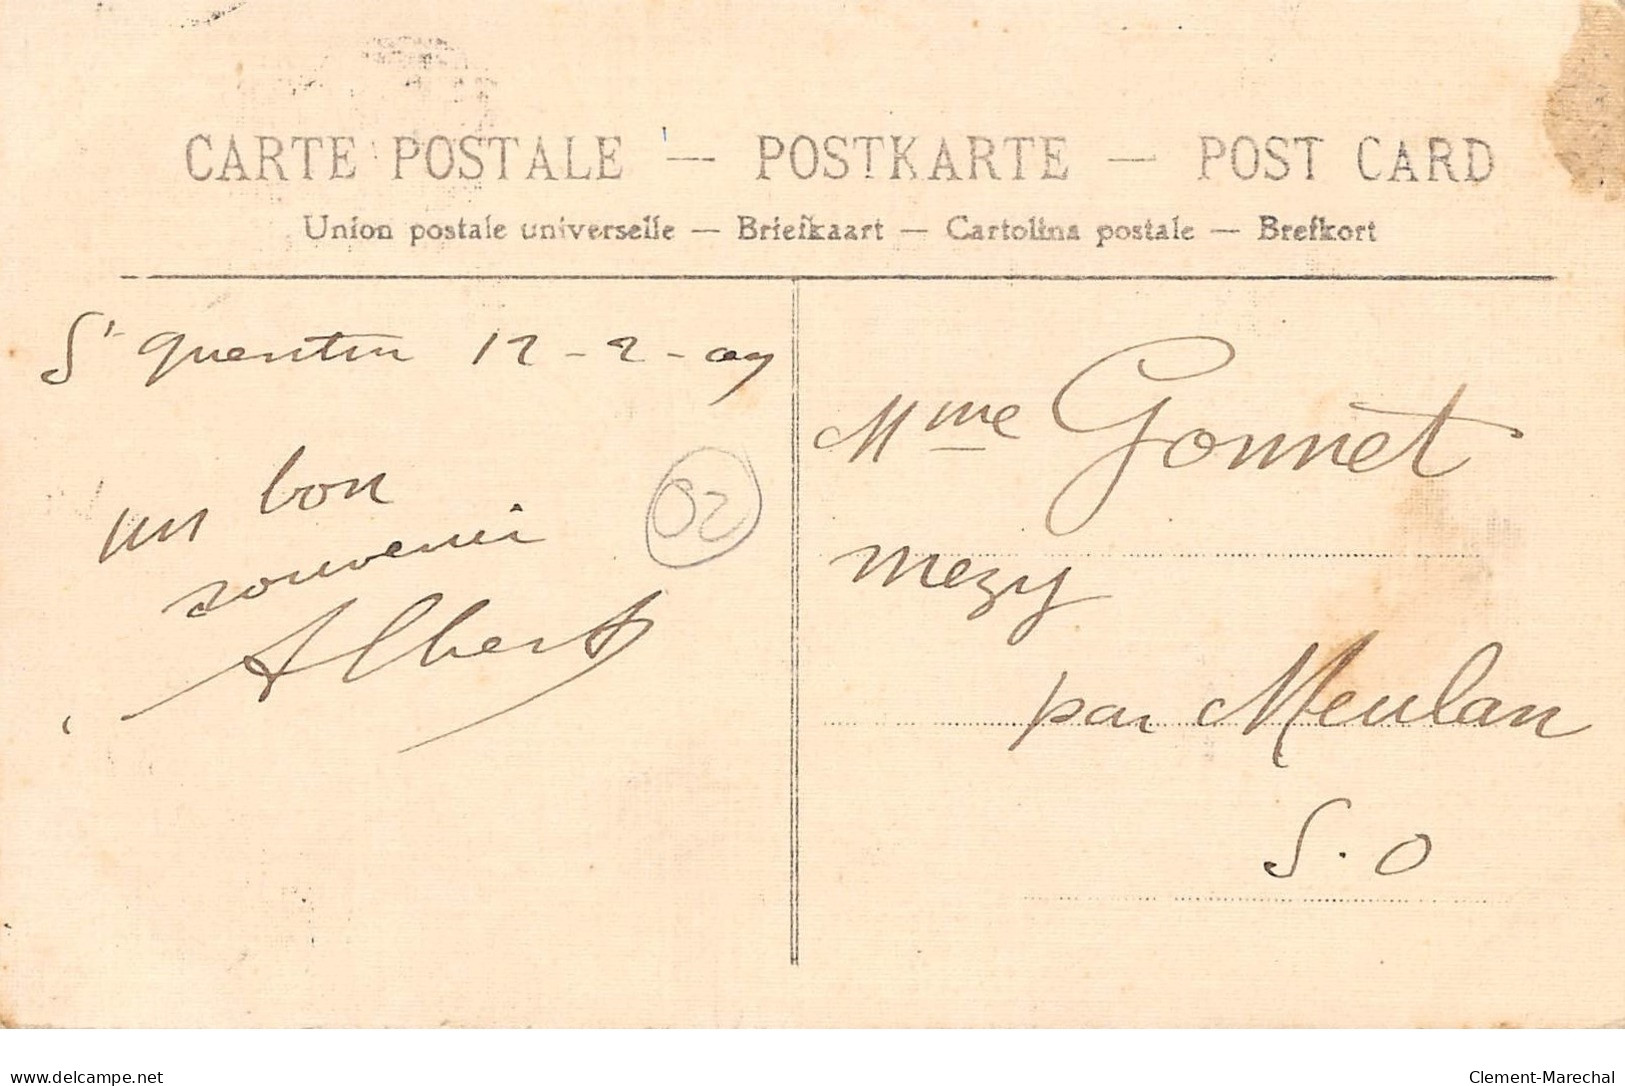 CARTE POSTALE — POSTKARTE — POST CARD
Union postale universelle — Briefkaart — Cartolina postale — Brefkort
St quentin 12-2-09
un bon
souvenir
Albert
02
Mme Gonnet
mezy
par Meulan
S.O
www.delcampe.net
Clement-Marechal